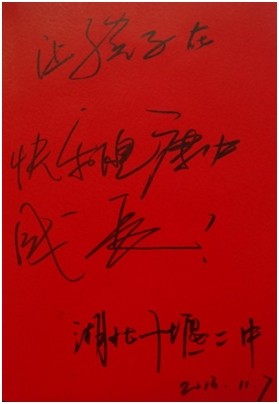 让孩子在
快乐健康中
成长！
湖北十堰二中
2018.11.7